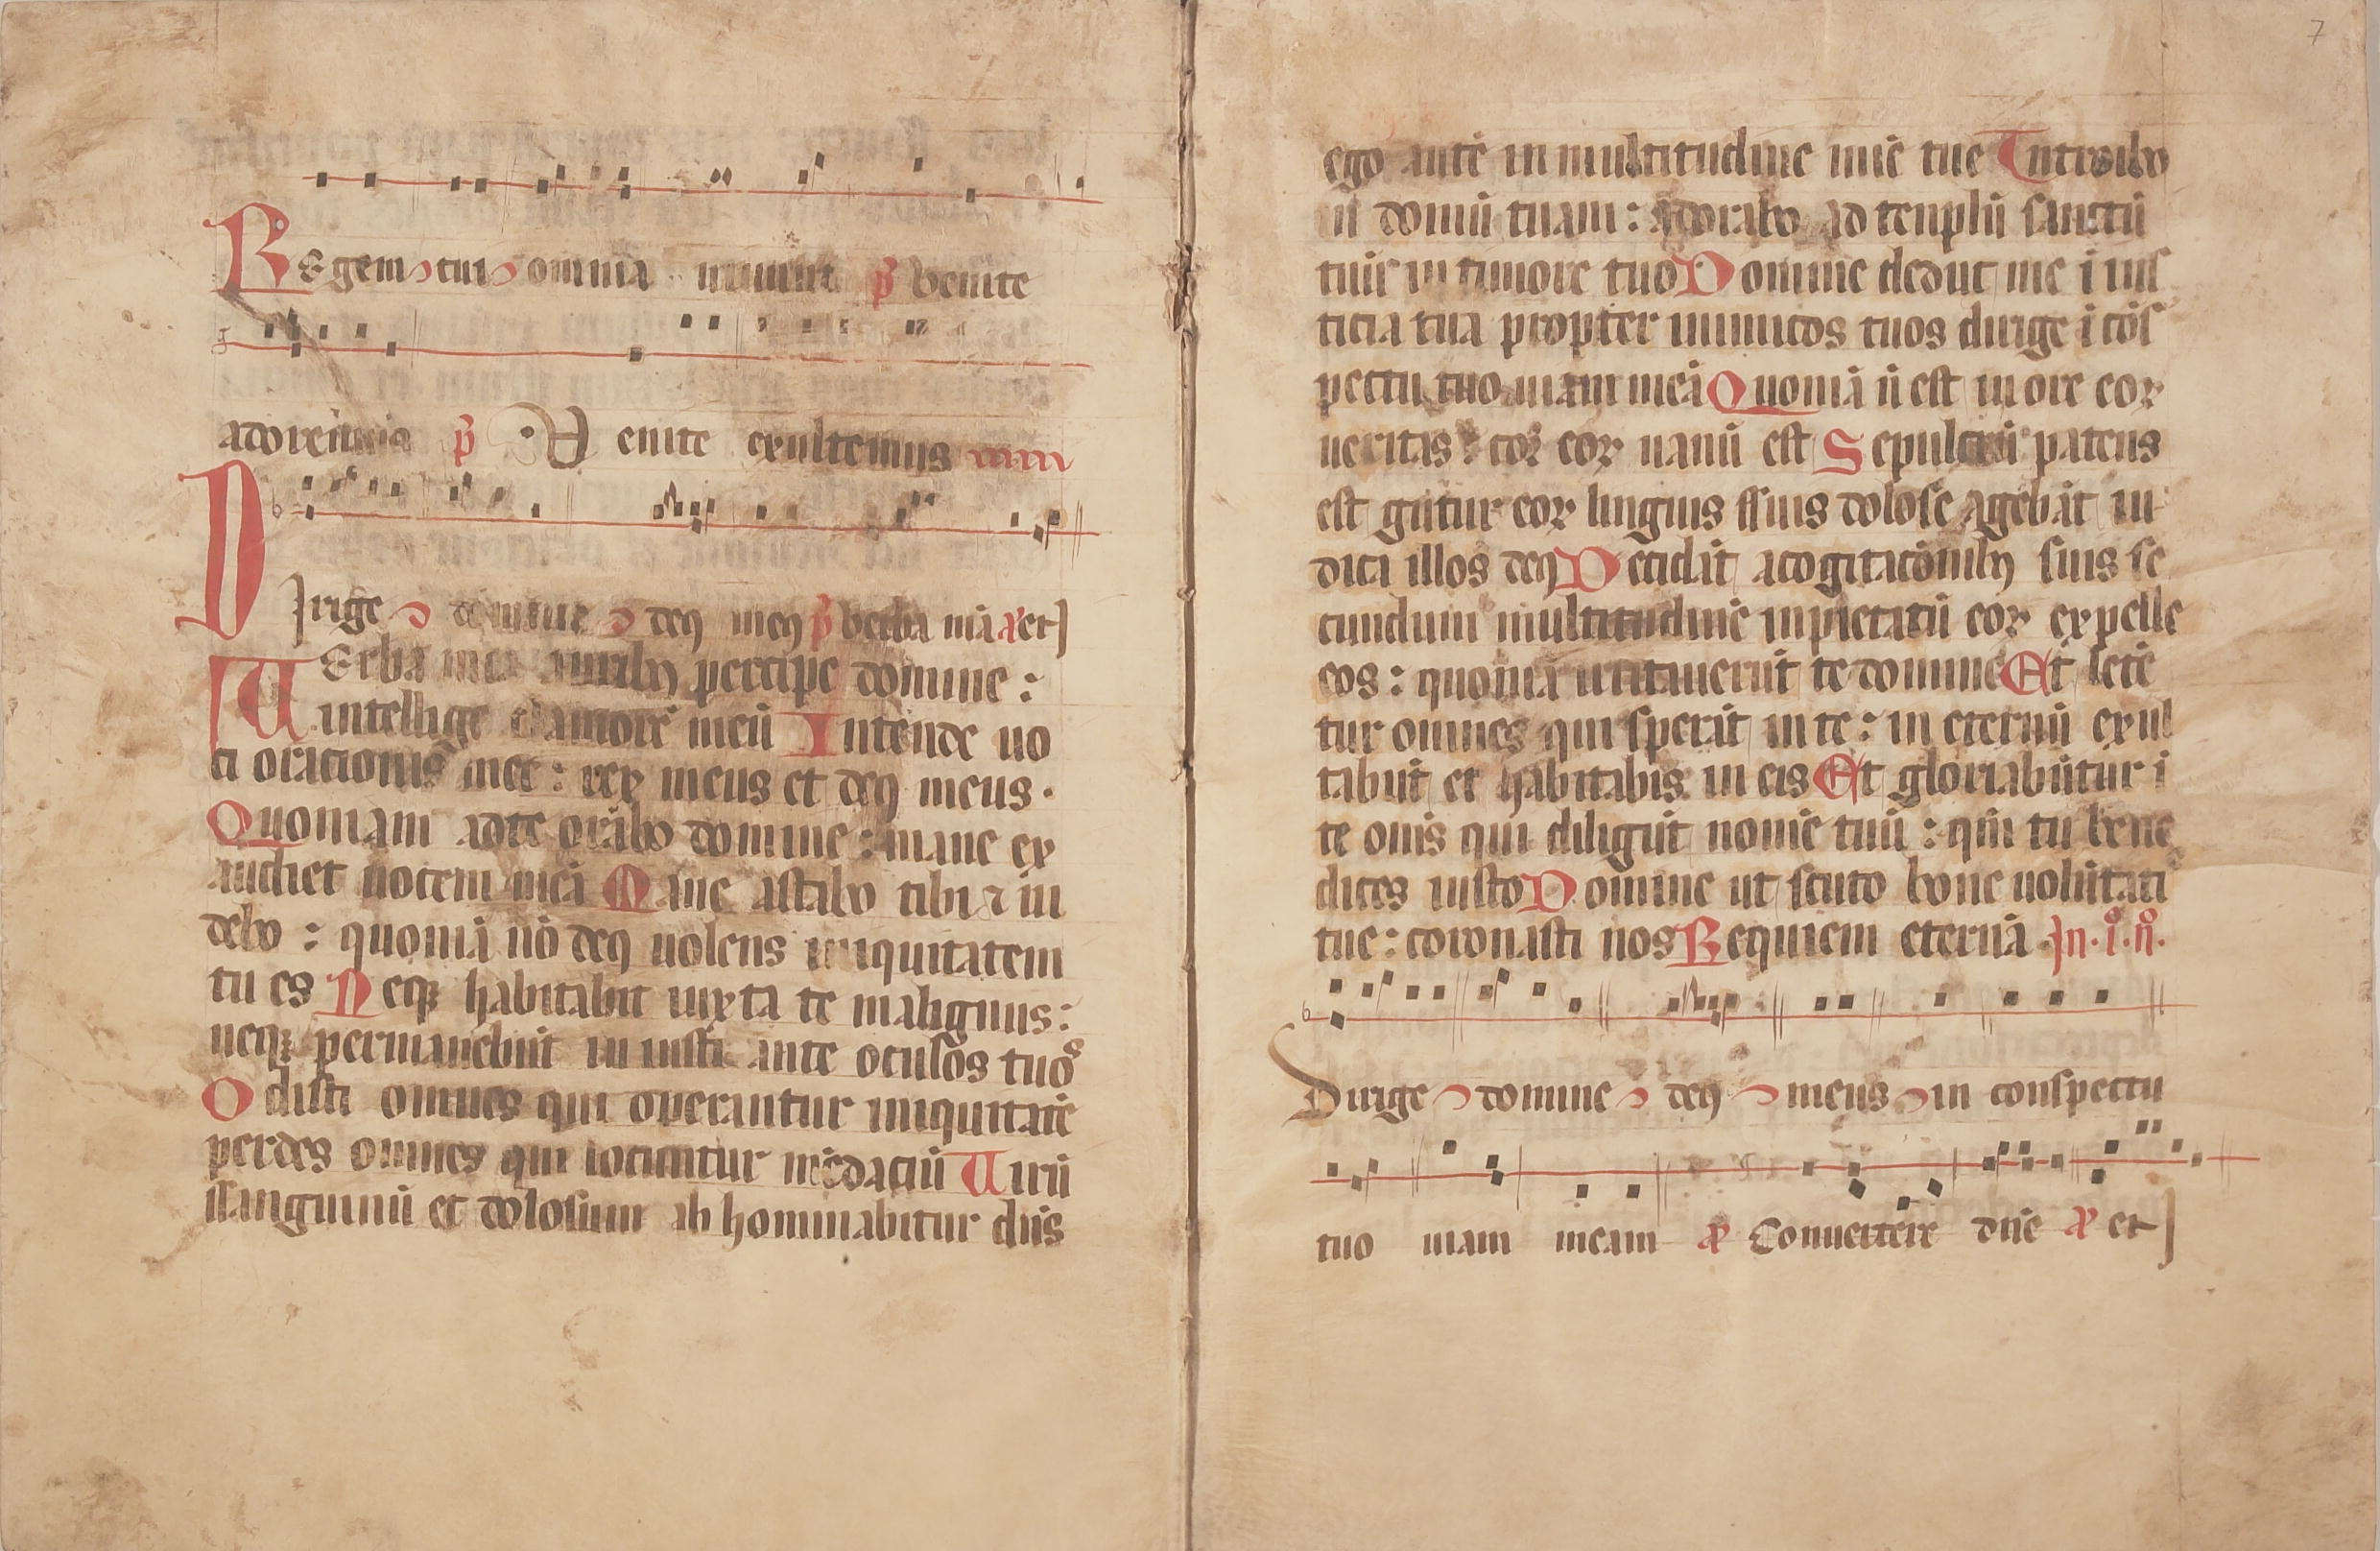 Regem cui omnia uiuunt p̄s venite
adoremus p̄s Uenite exultemus
Dirige domine deꝯ meꝯ p̄s verba mā aꝰ et
Uerba mea auribꝯ percipe domine :
intellige clamorē meū Intende uo
ci orationis mee : rex meus et deꝯ meus .
Quoniam adte orabo domine : mane ex
audiet uocem meā Mane astabo tibi ⁊ ui
debo : quoniā nō deꝯ uolens iniquitatem
tu es Neqꝫ habitabit iuxta te malignus :
neqꝫ permanebūt in iusti ante oculos tuos
Odisti omnes qui operantur iniquitatē
perdes omnes qui locuntur mēdaciū Uirū
sanguinū et dolosum ab hominabitur dn̄s
7
ego autē in multitudine mīe tue Introibo
in domū tuam : adorabo ad templū sanctū
tuū in timore tuo Domine deduc me ī ius
ticia tua propter inimicos tuos dirige ī cōs
pectu tuo uiam meā Quoniā n̄ est in ore eoꝝ
ueritas : cor eoꝝ uanū est Sepulcrū patens
est gūtur eoꝝ linguis suis dolose agebāt iu
dica illos deꝯ Decidāt acogitacōnibꝯ suis se
cundum multitudinē inpietatū eoꝝ expelle
eos : quoniā irritauerūt te domine Et letē
tur omnes qui sperāt in te : in eternū exul
tabūt et habitabis in eis Et gloriabūtur ī
te om̄s qui diligūt nomē tuū : qm̄ tu bene
dices iusto Domine ut scuto bone uolūtatis
tue : coronasti nos Requiem eternā In . i͛ . n͛ .
Dirige domine deꝯ meus in conspectu
tuo uiam meam aꝰ Conuertere dn̄e aꝰ et